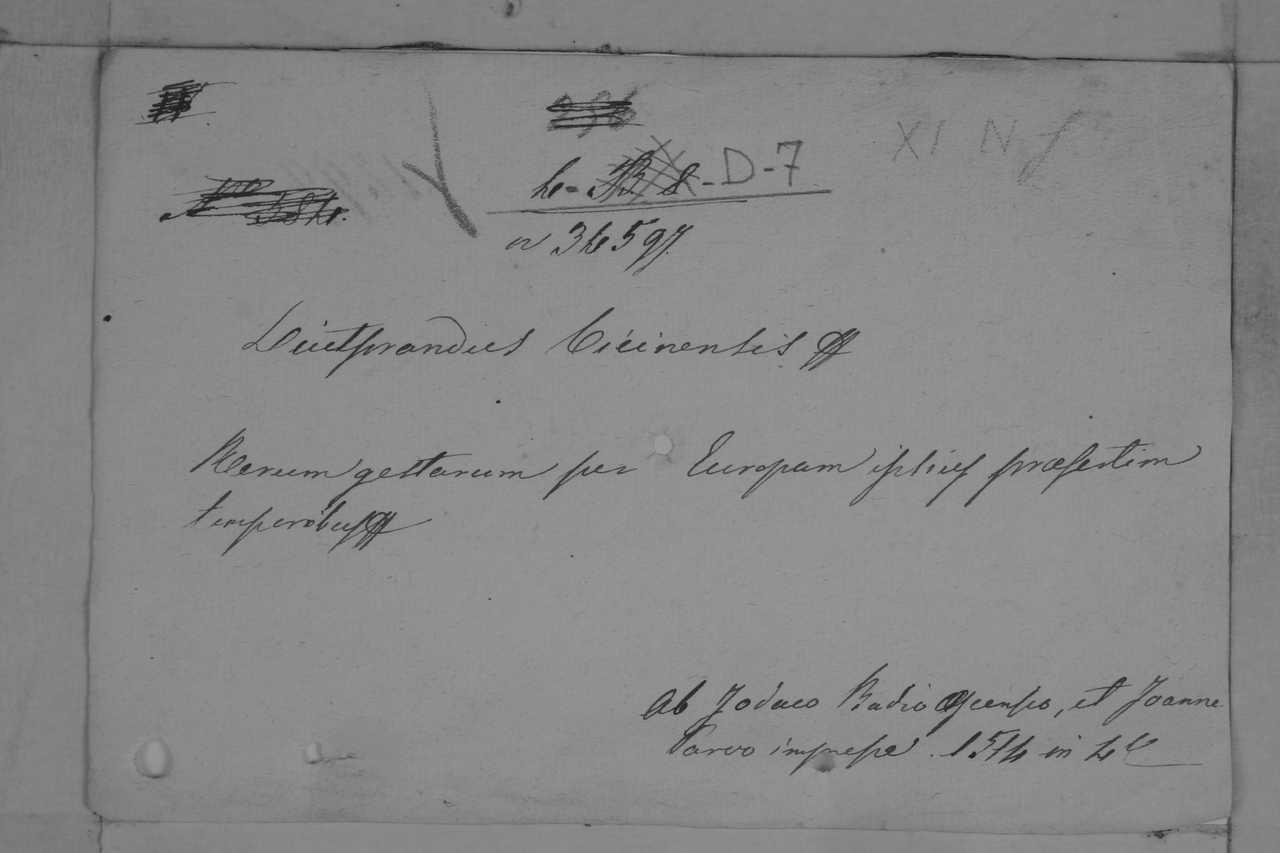 XI N f
4- D-7
n 34597.
Luitprandus Ticinensis
Rerum gestarum per Europam ipsius præsertim
temporibus
Ab Jodoco Badio Ascensio, et Joanne
Parvo impressæ. 1514 in 4º